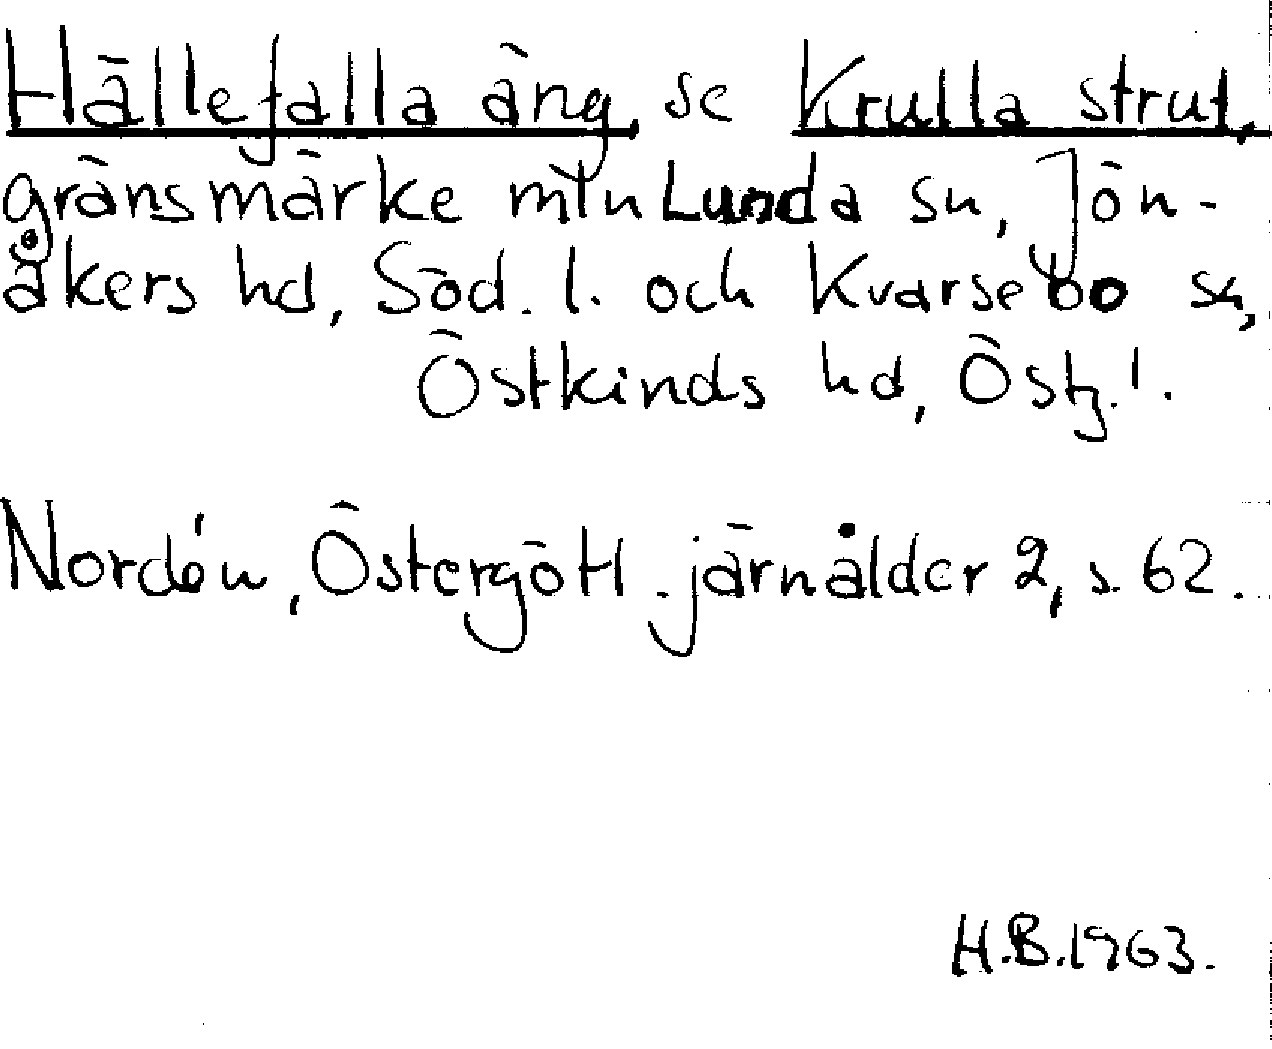 Hällefalla äng, se Krulla strut,
gränsmärke mln Lunda sn, Jön-
åkers hd, Söd. l. och Kvarsebo sn,
Östkinds hd, Östg. l.
Nordén, Östergötl. järnålder 2, s. 62.
H.B. 1963.